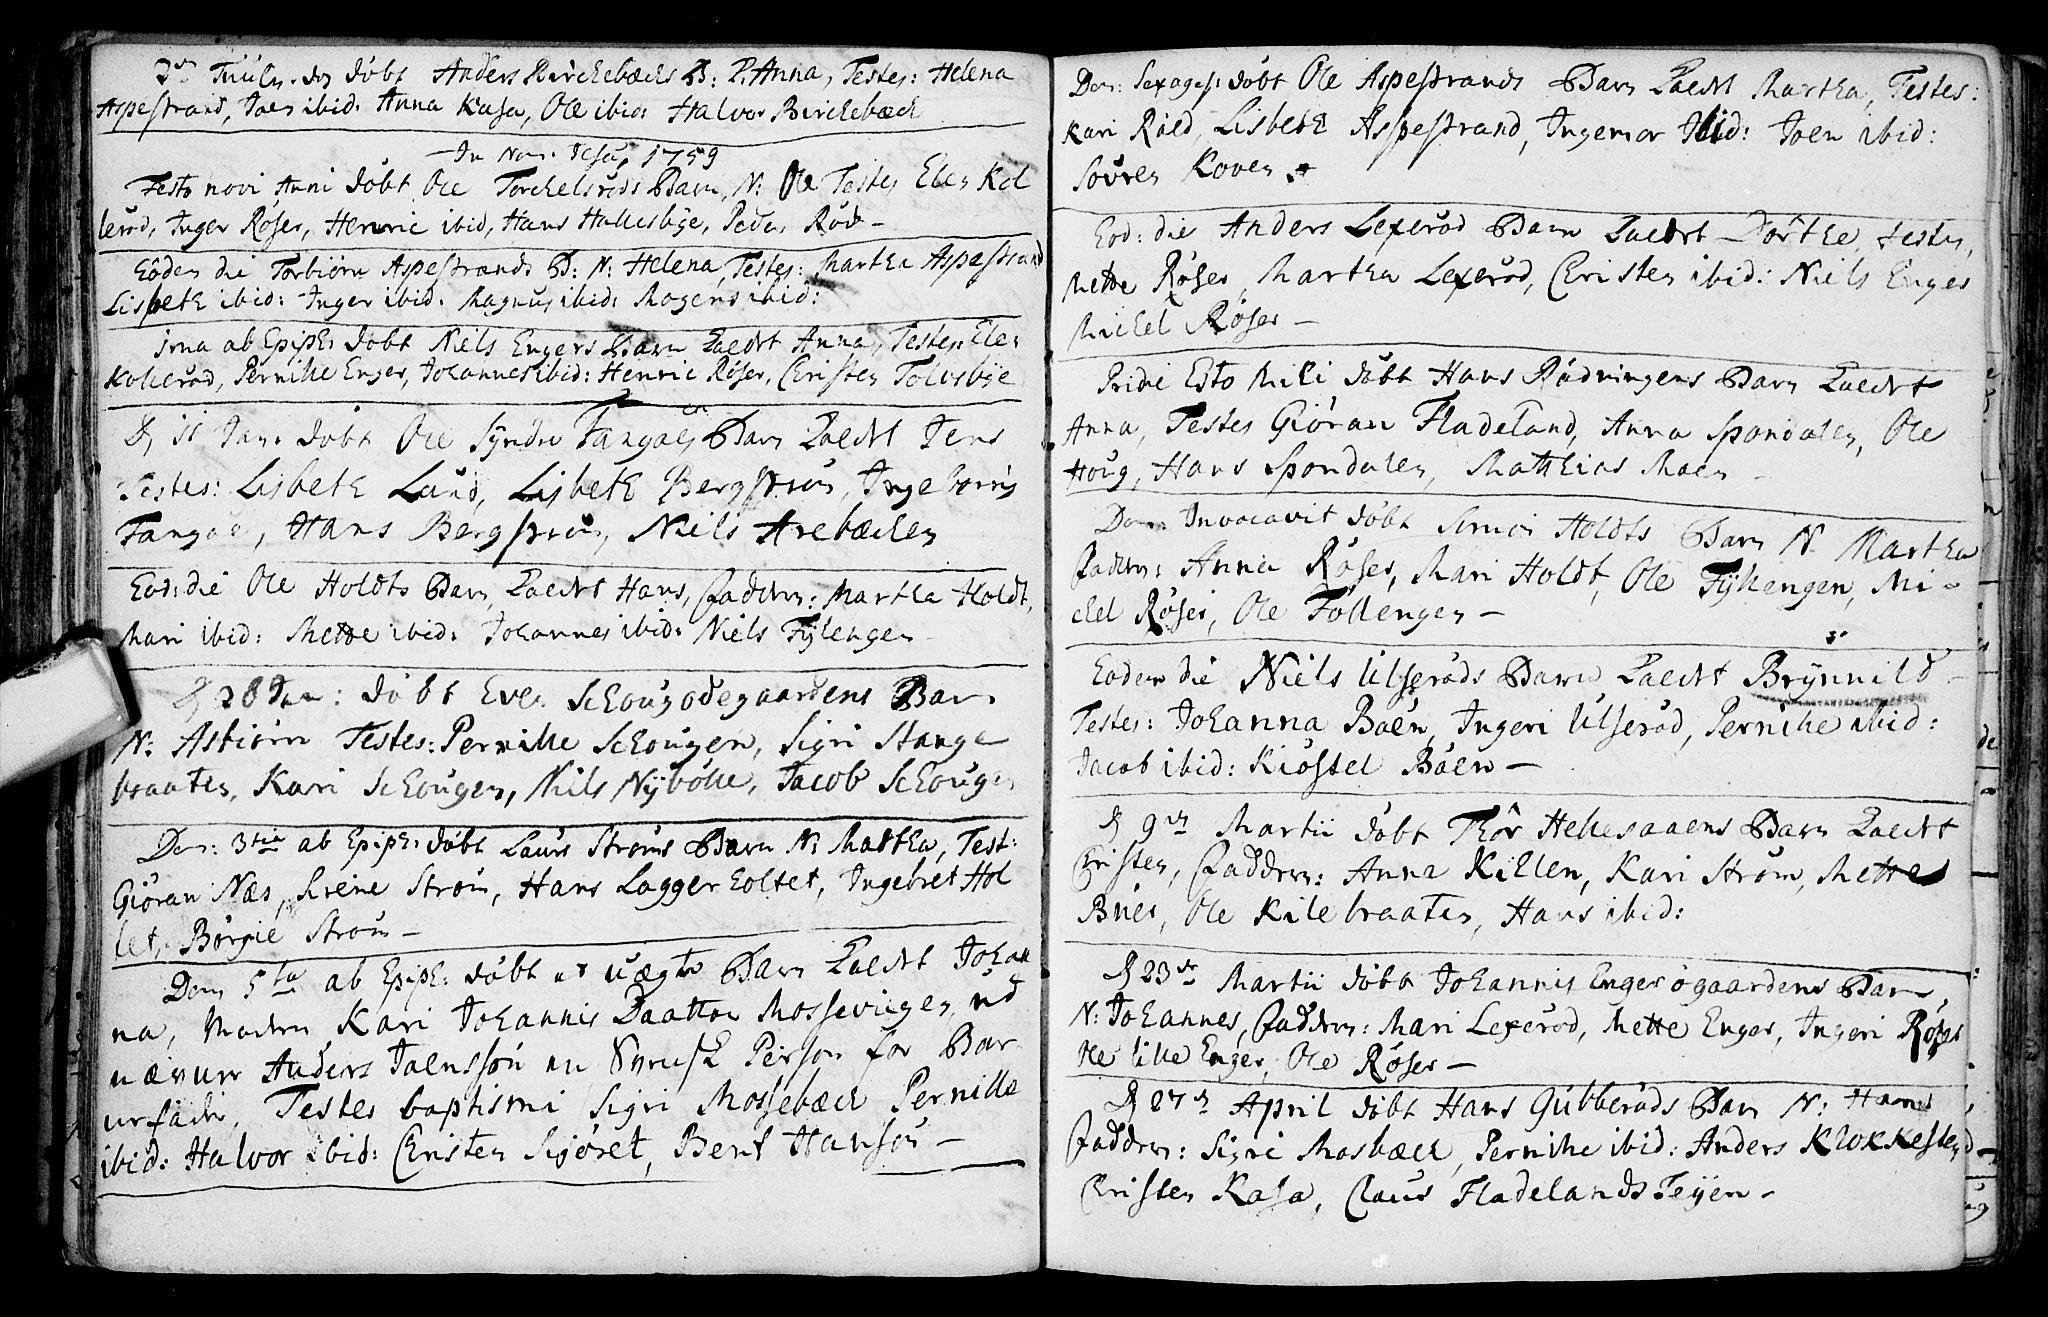 2den Juule dag døbt Anders Birchebæchs B: N. Anna, Testes: Helena
Aspestrand, Joen ibid: Anna Kasa, Ole ibid: Halvor Birchebæch
In Nom: Jesu, 1759
Festo novi Anni døbt Ole Torchelsrøds Barn, N: Ole Testes Elen Kol
lerød, Inger Røser, Henric ibid, Hans Hallesbye, Peder Rød -
Eodem die Torbiørn Aspestrands B: N: Helena, Testes: Martha Aspestrand
Lisbeth ibid: Inger ibid: Magnus ibid: Mogens ibid:
1ma ab Epiph: døbt Niels Engers Barn kaldet Anna, Testes: Elen
Kollerød, Pernille Enger, Johannes ibid: Henric Røser, Christen Tolvsbye
D 11 Jan: døbt Ole Syndre Tangens Barn kaldet Jens
Testes: Lisbeth Lund, Lisbeth Bergstrøm, Ingeborrig
Tangen, Hans Bergstrøm, Niels Arebæchen
Eod: die Ole Holdts Barn kaldet Hans, Faddere: Martha Holdt,
Mari ibid: Mette ibid: Johannes ibid: Niels Fylengen
D 28 Jan: døbt Even Schougødegaardens Barn
N: Asbiørn Testes: Pernille Schougen, Sigri Stange
braaten, Kari Schougen, Niels Nybølle, Jacob Schougen
Dom: 3tia ab Epiph: døbt Laurs Strøms Barn N: Martha, Test:
Giøran Næs, Sirene Strøm, Hans Laggerholtet, Ingebret Hol
let, Børgie Strøm -
Dom 5ta ab Epiph: døbt et uægte Barn kaldet Johan
na, Moderen Kari Johannis Daatter Mosseviigen, ud
nævner Anders Joenssøn en Person for Bar
nefader, Testes baptismi Sigri Mossebæch Pernille
ibid: Halvor ibid: Christen Siøret, Bent Hansøn -
Dom: Sexages: døbt Ole Aspestrands Barn kaldet Martha, Testes:
Kari Røed, Lisbeth Aspestrand, Ingemor Ibid: Joen ibid:
Søvren Koven
Eod: die Anders Lexerød Barn kaldet Dorthe, testes,
Mette Røser, Martha Lexerød, Christen ibid: Niels Enger
Michel Røser -
Pridie Esto Mihi døbt Hans Rødningens Barn kaldet
Anna, Testes Giøran Fladeland, Anna Spondalen, Ole
Houg, Hans Spondalen, Matthias Moen -
Dom: Invocavit døbt Simon Holdts Barn N. Martha
Faddere: Anna Røser, Mari Holdt, Ole Fyllengen, Mi-
chel Røser, Ole Føllengen -
Eodem die Niels Ulserøds Barn kaldet Brynnild -
Testes: Johanna Boen, Ingeri Ulserød, Pernille ibid:
Jacob ibid: Kiøstel Boen -
D 9de Martii døbt Thor Hellesaaens Barn kaldet
Christen, Faddere: Anna Killen, Kari Strøm, Mette
Buer, Ole Kilebraaten, Hans ibid:
D 23de Martii døbt Johannis Engerøgaardens Barn,
N: Johannes, Faddere: Mari Lexerød, Mette Enger, Ingeri Røser
Ole lille Enger, Ole Røser -
D 27de April døbt Hans Gubberøds Barn N: Hans
Faddere: Sigri Mosbæch, Pernille ibid: Anders Klokkestend
Christen Kasa, Claus Fladelands Teyen -